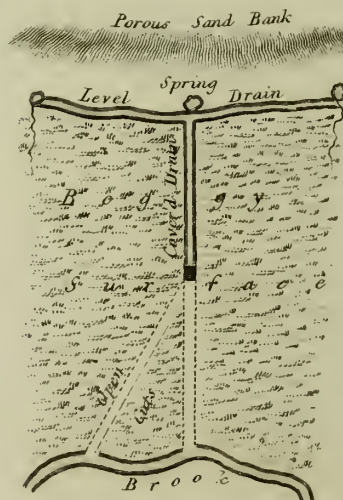 Porous Sand Bank
Spring
Level Drain
Cover'd Drain
Boggy
Surface
Open Cuts
Brook